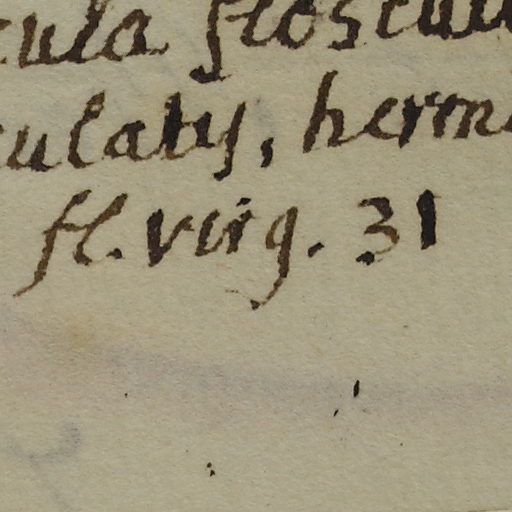 cula floscul
culatis, herma
fl. virg. 31